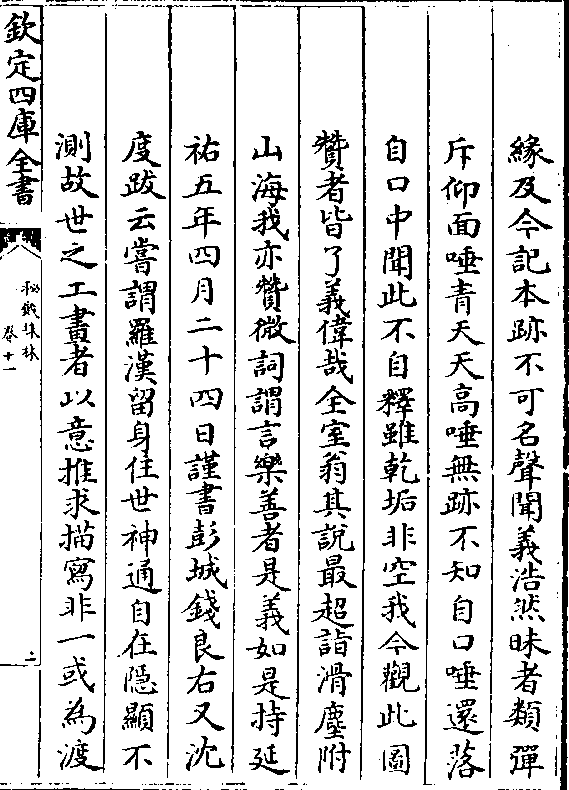 緣及今記本跡不可名聲聞義浩然昧者類彈
斥仰面唾青天天高唾無跡不知自口唾還落
自口中聞此不自釋雖乾垢非空我今觀此圖
贊者皆了義偉哉全室翁其說最超詣滑塵附
山海我亦贊微詞謂言樂善者是義如是持延
祐五年四月二十四日謹書彭城錢良右又沈
度跋云嘗謂羅漢留身住世神通自在隱顯不
測故世之工畫者以意推求描寫非一或為渡
欽定四庫全書
秘殿珠林
卷十一
二